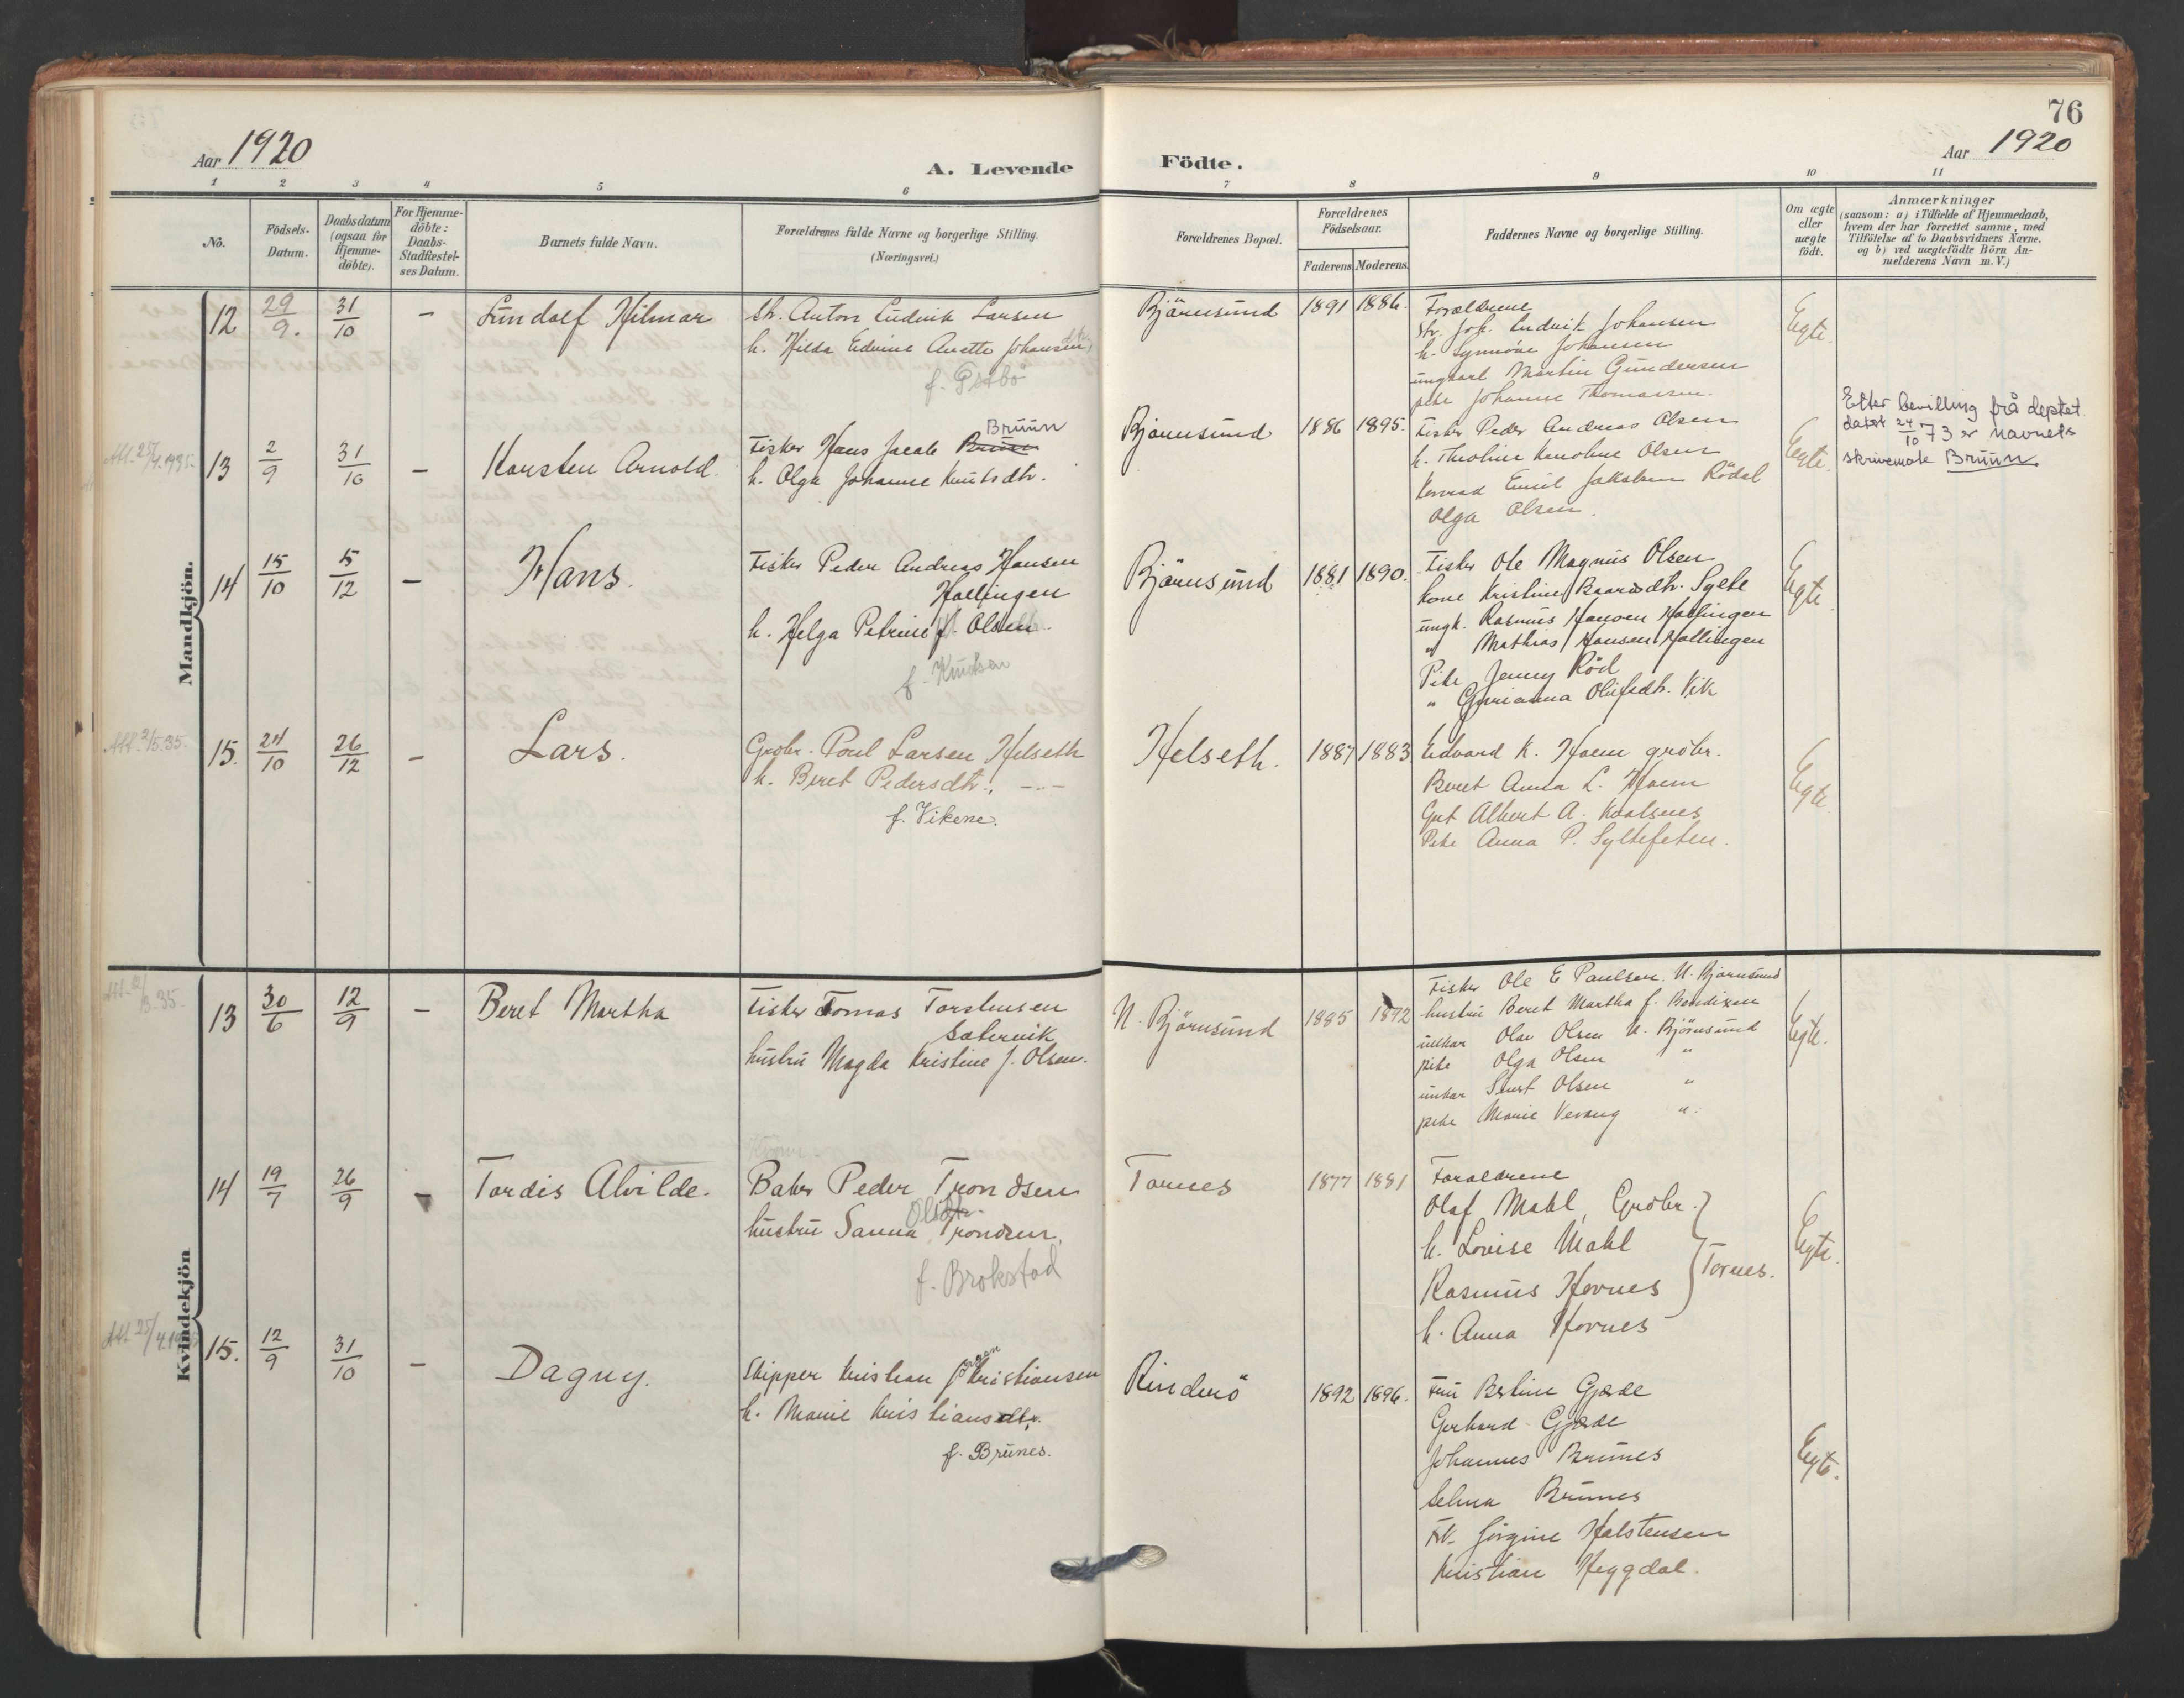 76
Aar 1920
A. Levende
Födte.
Aar 1920
1 2 3 4 5 6 7 8 9 10 11
No.
Födsels-
Datum.
Daabsdatum
(ogsaa for
Hjemme-
döbte).
For Hjemme-
döbte:
Daabs-
Stadfæstel-
ses Datum.
Barnets fulde Navn.
Forældrenes fulde Navne og borgerlige Stilling.
(Næringsvei.)
Forældrenes Bopæl.
Forældrenes
Födselsaar.
Faderens Moderens
Faddernes Navne og borgerlige Stilling.
Om ægte
eller
uægte
födt.
Anmærkninger
(saasom: a) i Tilfælde af Hjemmedaab,
hvem der har forrettet samme, med
Tilföielse af to Daabsvidners Navne,
og b) ved uægtefödte Börn An-
melderens Navn m. V.)
Mandkjön.
12 29/9. 31/10 - Lundolf Hilmar
Anton Ludvik Larsen
h. Hilda Edvine Anette Johansen
Bjørnsund 1891 1886.
Forældrene
Joh. Ludvik Johansen
h. Synnøve Johansen
ungkarl Martin Gundersen
pike Johanne Thomassen.
Egte.
13 2/9 31/10 - Karsten Arnold.
Bruun
Fisker Hans Jacob
h. Olga Johanne Knutsdtr.
Bjørnsund 1886 1895.
Fisker Peder Andreas Olsen
h. Olsen
Konrad Emil Jakobsen Rödal
Olga Olsen.
Egte.
Etter bevilling frå deptet.
datert 24/10 73 er navnets
skrivemåte Bruun.
14 15/10 5/12 - Hans.
Fisker Peder Andreas Hansen
Hollingen
h. Helga Petrine f. Olsen.
f. Knutsen
Björnsund 1881 1890.
Fisker Ole Magnus Olsen
kone Kristine Baardsdtr. Sylte
ungk. Rasmus Hansen Hollingen
" Mathias Hansen Hollingen
Pike Jenny Röd
" Gurianna Olufsdtr. Vik
Egte.
15. 24/10 26/12 - Lars.
Grobr. Poul Larsen Helseth
h. Beret Pedersdtr., -..-
f. Vikene.
Helseth. 1887 1883
Edvard K. Hoem grobr.
Beret Anna L. Hoem
Gut Albert A. Kaalsnes
Pike Anna P. Syltefeten.
Egte.
Kvindekjön
13 30/6 12/9 - Beret Martha
Fisker Tomas Torstensen
Sætervik
hustru Magda Kristine f. Olsen.
N. Björnsund 1885 1892
Fisker Ole E Paulsen, N. Bjørnsund
hustru Beret Martha f. Bendixen
Olav Olsen N. Björnsund
pike Olga Olsen "
unkar Olsen "
pike Marie Vevang "
Egte.
14 19/7 26/9 - Tordis Alvilde.
Baker Peder Trondsen
hustru Sanna Trondsen.
f. Brokstad
Tornes 1877 1881
Forældrene
Olaf Mahl, Grobr.
h. Lovise Mahl
Rasmus Hovnes
h. Anna Hovnes
Tornes.
Egte.
15. 12/9 31/10 - Dagny.
Skipper Kristian Kristiansen
h. Marie Kristiansdtr.
f. Brunes.
Rinderö 1892 1896.
Fru Berline Gjerde
Gerhard Gjerde
Johannes Brunes
Selma Brunes
Frk. Jörgine Halstensen
Kristian Heggdal.
Egte.